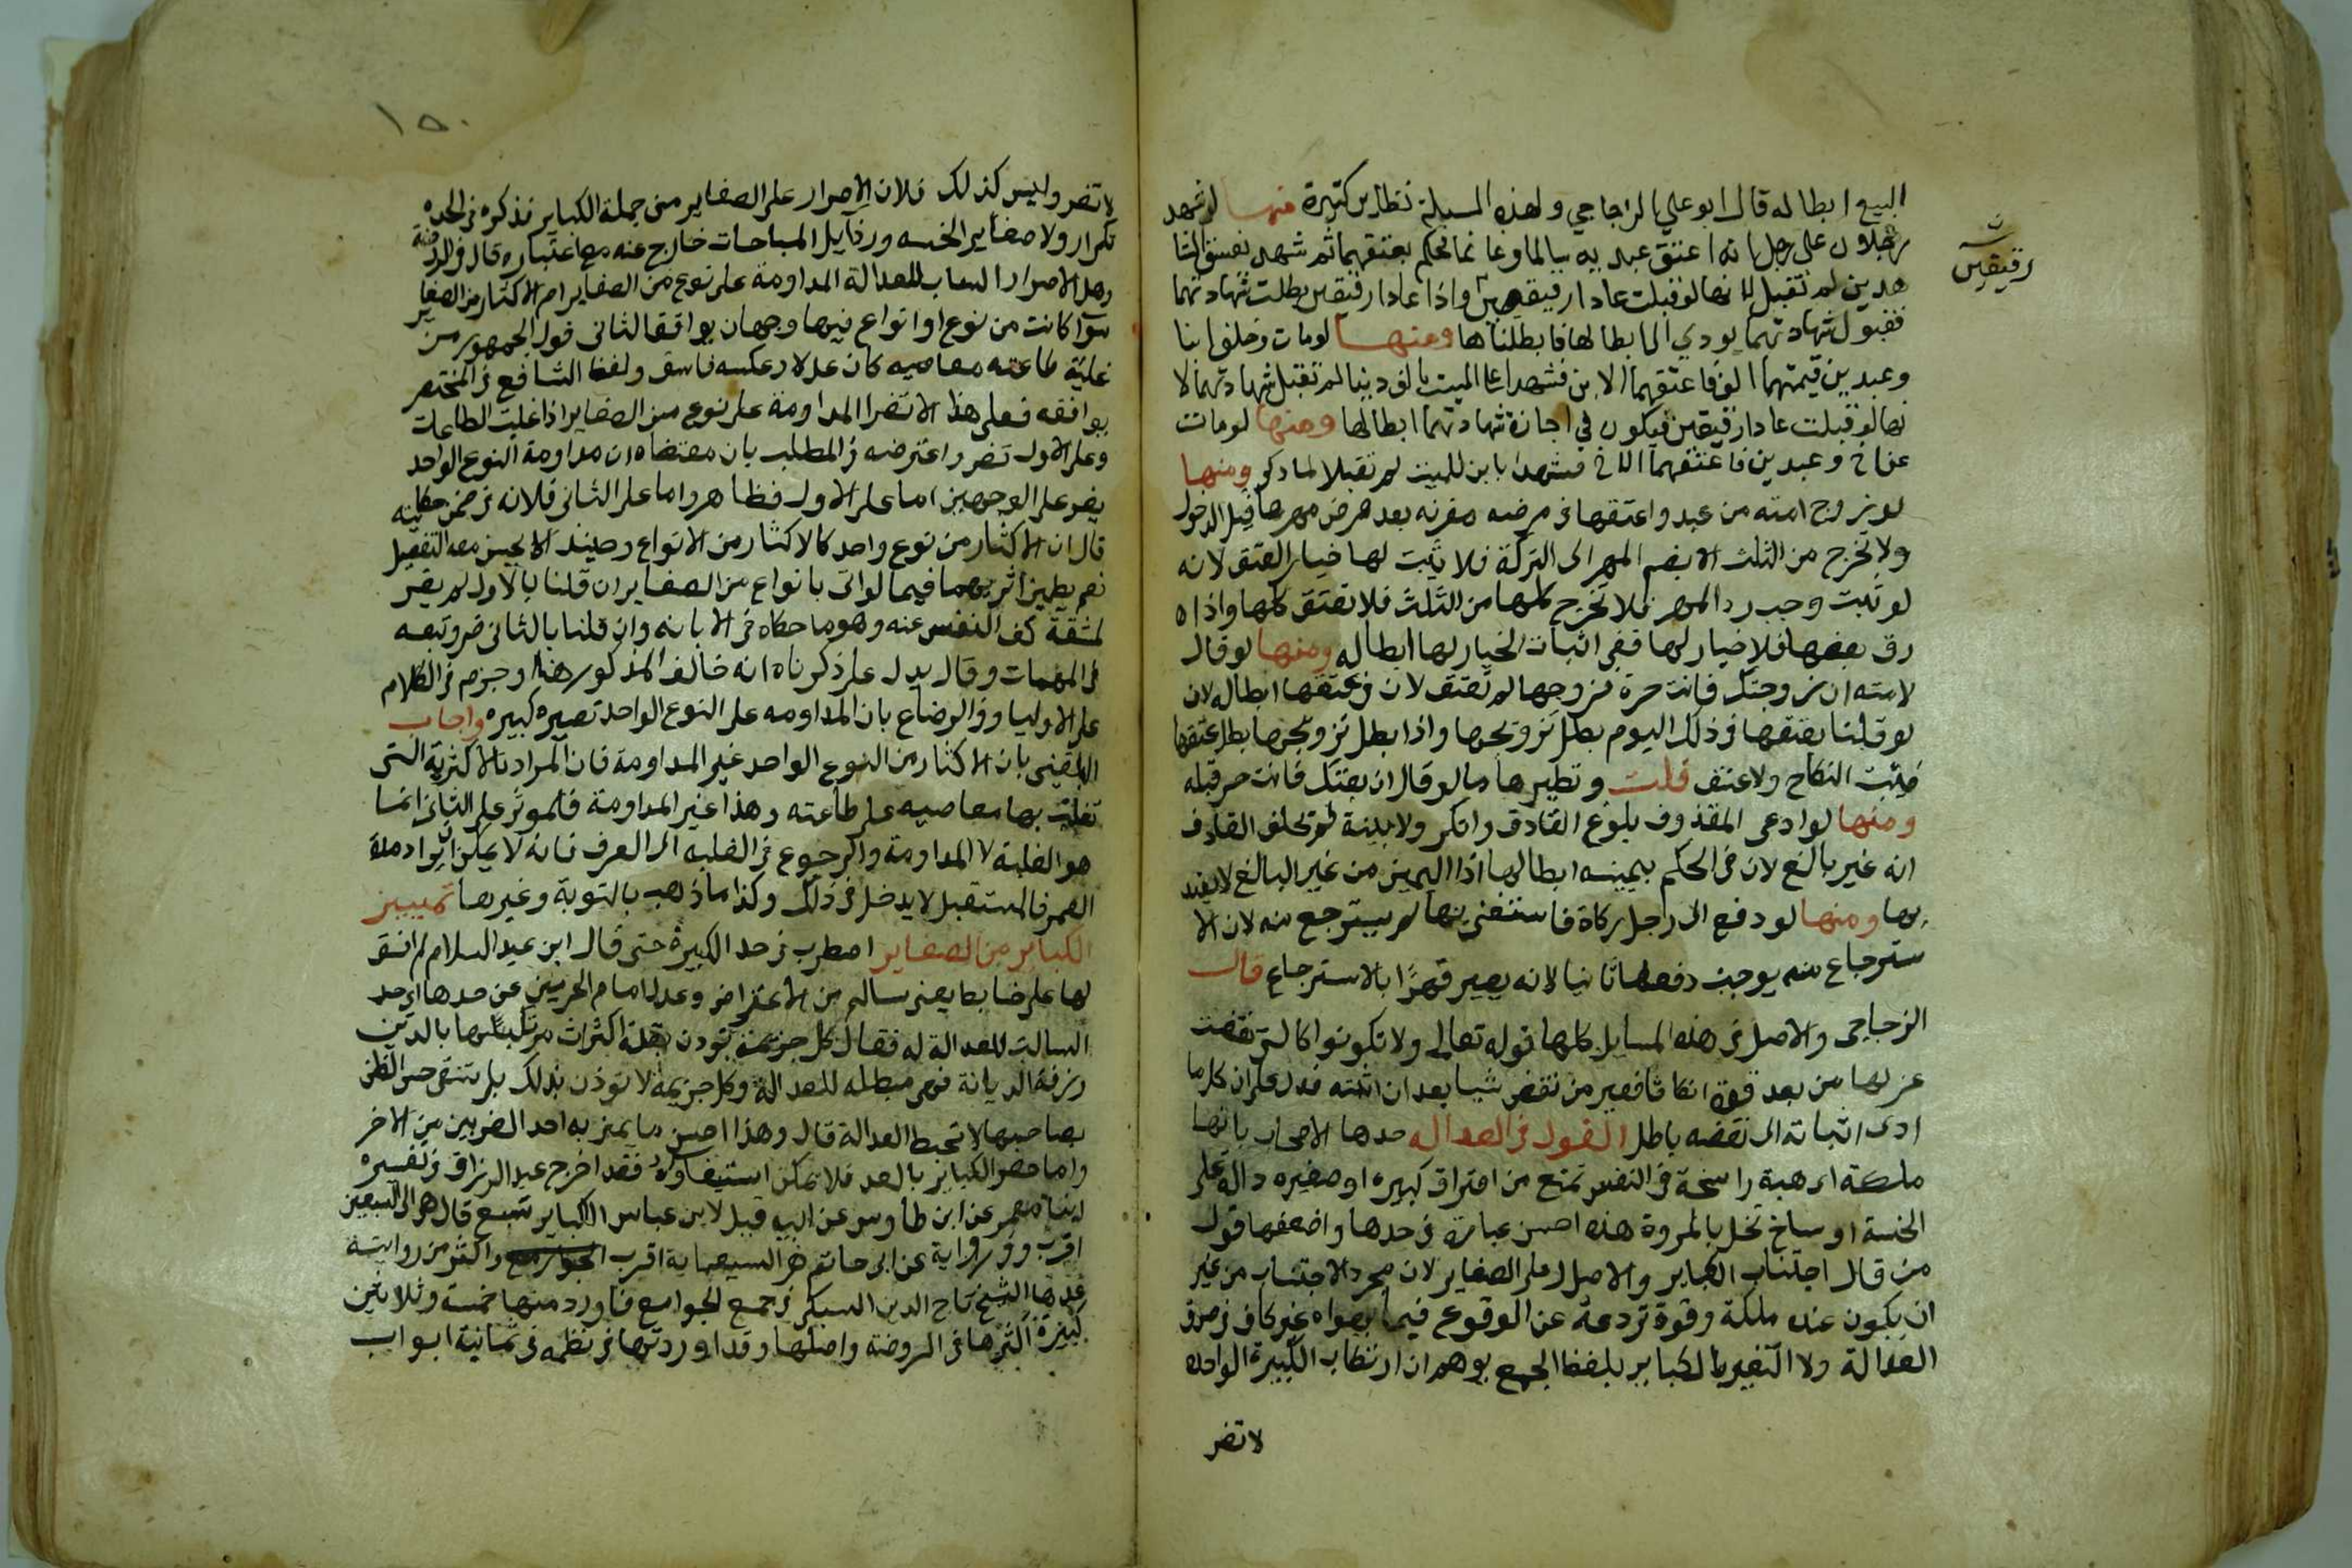 البيع ابطاله قال ابو علي الزجاجي ولهذه المسيلة نظاير كثيرة منها لو شهد
رجلان على رجل انه اعتق عبديه سالما وغانما فحكم بعتقهما ثم شهدا بفسق الشا
هدين لم تقبل لانها لو قبلت عادا رقيقين واذا عادا رقيقين بطلت شهادتهما
فقبول شهادتهما يودي الى ابطالها فابطلناها ومنها لو مات وخلف ابنا
وعبدين قيمتهما الف فاعتقهما الابن فشهدا على الميت بالف دينا لم تقبل شهادتهما لا
نها لو قبلت عادا رقيقين فيكون في اجازة شهادتهما ابطالها ومنها لو مات
عن اخ وعبدين فاعتقهما الاخ فشهدا بابن للميت لم تقبلا لما ذكر ومنها
لو تزوج امته من عبد واعتقها في مرضه بعد قبل الدخول
ولا تخرج من الثلث الا بضم المهر الى التركة فلا يثبت لها خيار العتق لانه
لو ثبت وجب رد المهر فلا تخرج كلها من الثلث فلا تعتق كلها واذا ه
رق بعضها فلا خيار لها ففي اثبات الخيار لها ابطاله ومنها لو قال
لامته ان زوجتك فانت حرة فزوجها لم تعتق لان في عتقها ابطاله لان
لو قلنا بعتقها في ذلك اليوم بطل تزويجها واذا بطل تزويجها بطل عتقها
فيثبت النكاح ولا عتق قلت ونظيرها ما لو قال ان بعتك فانت حر قبله
ومنها لو ادعى المقذوف بلوغ القاذف وانكر ولا بينة لم يحلف القاذف
انه غير بالغ لان في الحكم بيمينه ابطالها اذ اليمين من غير البالغ لا يعتد
بها ومنها لو دفع الى رجل زكاة فاستغنى بها لم يسترجع منه لان الا
سترجاع منه يوجب دفعها ثانيا لانه يصير فقيرا بالاسترجاع قال
الزجاجي والاصل في هذه المسايل كلها قوله تعالى ولا تكونوا كالتي نقضت
غزلها من بعد قوة انكاثا فعير من نقض شيا بعد ان اثبته فدل على ان كل ما
ادى اثباته الى نقضه باطل القول في العداله حدها الاصحاب بانها
ملكة اي هيبة راسخة في النفس تمنع من اقتراف كبيره او صغيره دالة على
الخسة او مباح تخل بالمروة هذه احسن عبارة في حدها واضعفها قول
من قال اجتناب الكباير والاصرار على الصغاير لان مجرد الاجتناب من غير
ان يكون عنده ملكة وقوة تردعه عن الوقوع فيما يهواه غير كاف في صدق
العدالة ولا التعبير بالكباير بلفظ الجمع يوهم ان ارتكاب الكبيرة الواحده
لا تضر
رقيقين
١٥٠
لا تضر وليس كذلك فلان الاصرار على الصغاير من جملة الكباير فذكره في الحد
تكرار ولا صغاير الخسه ورذايل المباحات خارج عنه مع اعتباره قال في الروضة
وهل الاصرار السالب للعدالة المداومة على نوع من الصغاير ام الاكثار من الصغاير
سوا كانت من نوع او انواع فيها وجهان يوافق الثاني قول الجمهور من
غلبة طاعته معاصيه كان عدلا وعكسه فاسق ولفظ الشافعي في المختصر
يوافقه فعلى هذا لا تضر المداومة على نوع من الصغاير اذا غلبت الطاعات
وعلى الاول تضر واعترضه في المطلب بان مقتضاه ان مداومة النوع الواحد
يضر على الوجهين اما على الاول فظاهر واما على الثاني فلانه في ضمن حكايته
قال ان الاكثار من نوع واحد كالاكثار من الانواع وحينيذ لا يحسن معه التفصيل
نعم يظهر اثرهما فيما لو اتى بانواع من الصغاير ان قلنا بالاول لم يضر
لمشقة كف النفس عنه وهو ما حكاه في الابانه وان قلنا بالثاني ضر وتبعه
في المهمات وقال يدل على ذكرناه انه خالف المذكور هنا وجزم في الكلام
على الاوليا وفي الرضاع بان المداومه على النوع الواحد تصيره كبيره واجاب
البلقيني بان الاكثار من النوع الواحد غير المداومة فان المراد بالاكثرية التي
تغلب بها معاصيه على طاعته وهذا غير المداومة فالموثر على الثاني انما
هو الغلبة لا المداومة والرجوع في الغلبه الى العرف فانه لا يمكن ان يراد مدة
العمر فالمستقبل لا يدخل في ذلك وكذا ما ذهب بالتوبة وغيرها تمييز
الكباير من الصغاير اضطرب في حد الكبيرة حتى قال ابن عبد السلام لم اقف
لها على ضابط يعني سالم من الاعتراض وعدل امام الحرمين عن حدها الى حد
السالب للعدالة له فقال كل جريمة توذن بقلة اكتراث مرتكبها بالدين
ورقة الديانة فهي مبطله للعدالة وكل جريمة لا توذن بذلك بل تبقى حسن الظن
بصاحبها لا تحبط العدالة قال وهذا احسن ما يميز به احد الضربين من الاخر
واما حصر الكباير بالعد فلا يمكن استيفاوه فقد اخرج عبد الرزاق في تفسيره
انباه معمر عن ابن طاوس عن ابيه قيل لابن عباس الكباير سبع قال هي الى السبعين
اقرب وفي رواية عن ابي حاتم هي السبعماية اقرب واكثر من روايته
عدها الشيخ تاج الدين السبكي في جمع الجوامع فاورد منها خمسة وثلاثين
كبيرة اكثرها في الروضة واصلها وقد اوردتها في نظمه في ثمانية ابواب